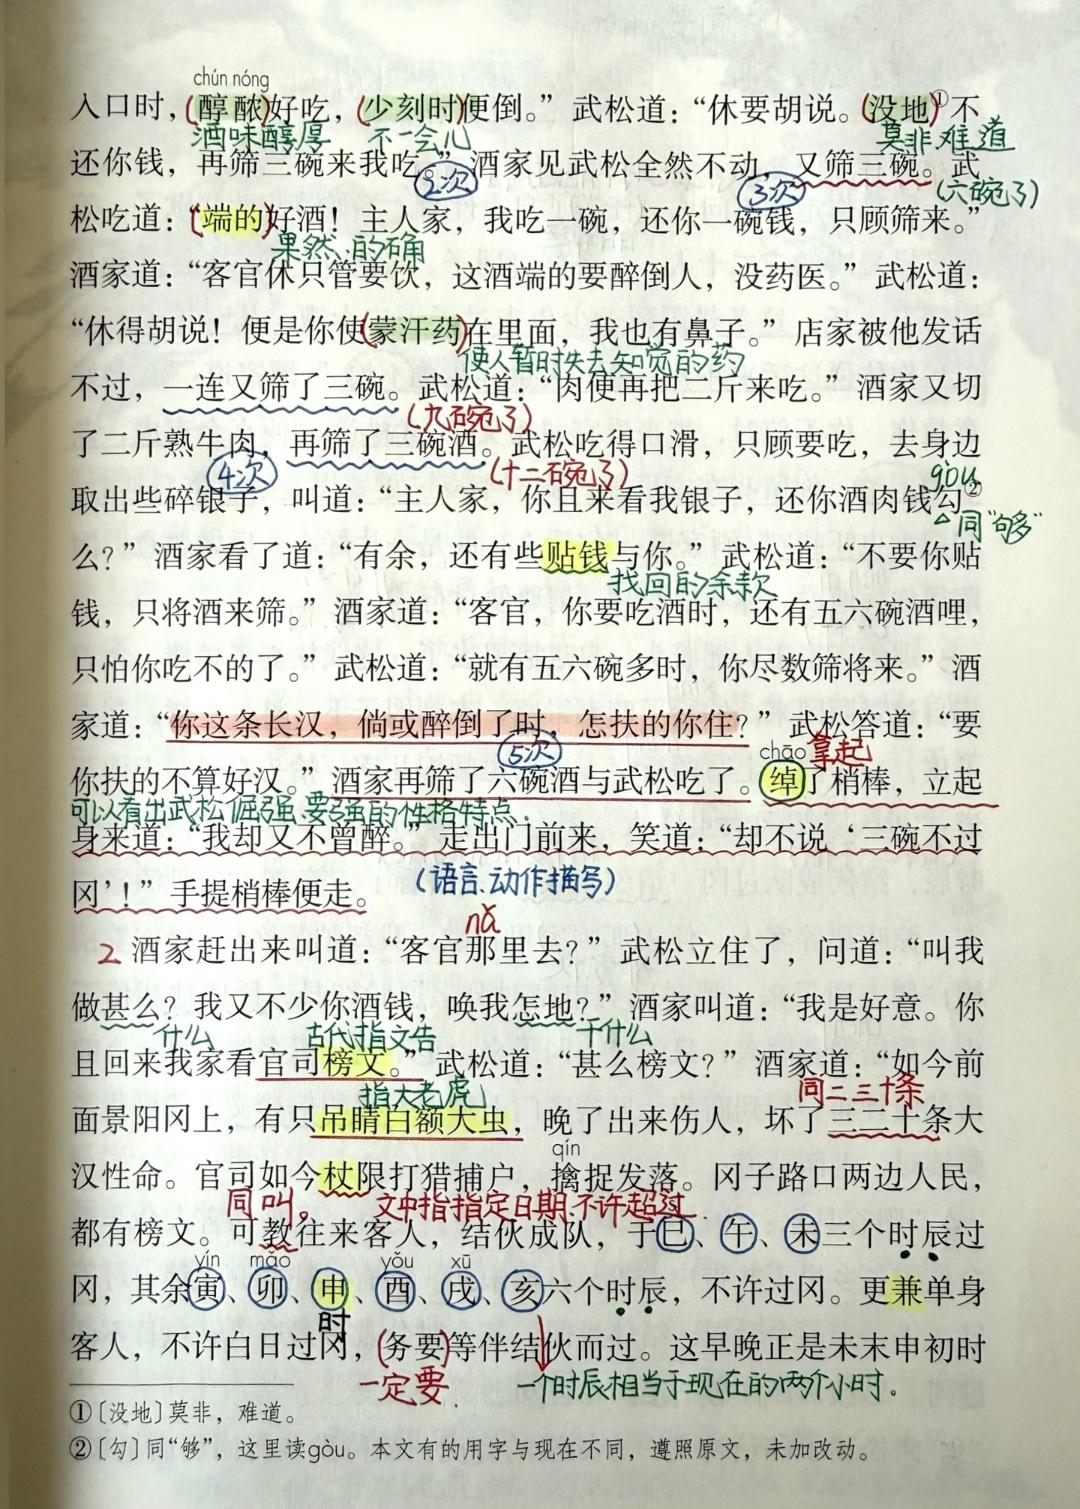 chún nóng
入口时，(醇酿)好吃，(少刻时)便倒。”武松道：“休要胡说。(没地)①不
酒味醇厚 不一会儿 莫非难道
还你钱，再筛三碗来我吃。”酒家见武松全然不动，又筛三碗。武
2次 3次 (六碗了)
松吃道：“(端的)好酒！主人家，我吃一碗，还你一碗钱，只顾筛来。”
果然、的确
酒家道：“客官休只管要饮，这酒端的要醉倒人，没药医。”武松道：
“休得胡说！便是你使(蒙汗药)在里面，我也有鼻子。”店家被他发话
使人暂时失去知觉的药
不过，一连又筛了三碗。武松道：“肉便再把二斤来吃。”酒家又切
(九碗了)
了二斤熟牛肉，再筛了三碗酒。武松吃得口滑，只顾要吃，去身边
4次 (十二碗了) gòu
取出些碎银子，叫道：“主人家，你且来看我银子，还你酒肉钱勾②
同“够”
么？”酒家看了道：“有余，还有些贴钱与你。”武松道：“不要你贴
找回的余款
钱，只将酒来筛。”酒家道：“客官，你要吃酒时，还有五六碗酒哩，
只怕你吃不的了。”武松道：“就有五六碗多时，你尽数筛将来。”酒
家道：“你这条长汉，倘或醉倒了时，怎扶的你住？”武松答道：“要
5次 chāo 拿起
你扶的不算好汉。”酒家再筛了六碗酒与武松吃了。绰了梢棒，立起
可以看出武松倔强、要强的性格特点.
身来道：“我却又不曾醉。”走出门前来，笑道：“却不说‘三碗不过
冈’！”手提梢棒便走。
(语言、动作描写)
nǎ
2 酒家赶出来叫道：“客官那里去？”武松立住了，问道：“叫我
做甚么？我又不少你酒钱，唤我怎地？”酒家叫道：“我是好意。你
什么 古代指文告 干什么
且回来我家看官司榜文。”武松道：“甚么榜文？”酒家道：“如今前
指大老虎 同二三十条
面景阳冈上，有只吊睛白额大虫，晚了出来伤人，坏了三二十条大
qín
汉性命。官司如今杖限打猎捕户，擒捉发落。冈子路口两边人民，
同叫。 文中指指定日期，不许超过.
都有榜文。可教往来客人，结伙成队，于巳、午、未三个时辰过
yín mǎo yǒu xū
冈，其余寅、卯、申、酉、戌、亥六个时辰，不许过冈。更兼单身
时
客人，不许白日过冈，(务要)等伴结伙而过。这早晚正是未末申初时
一定要. 一个时辰相当于现在的两个小时.
①〔没地〕莫非，难道。
②〔勾〕同“够”，这里读gòu。本文有的用字与现在不同，遵照原文，未加改动。